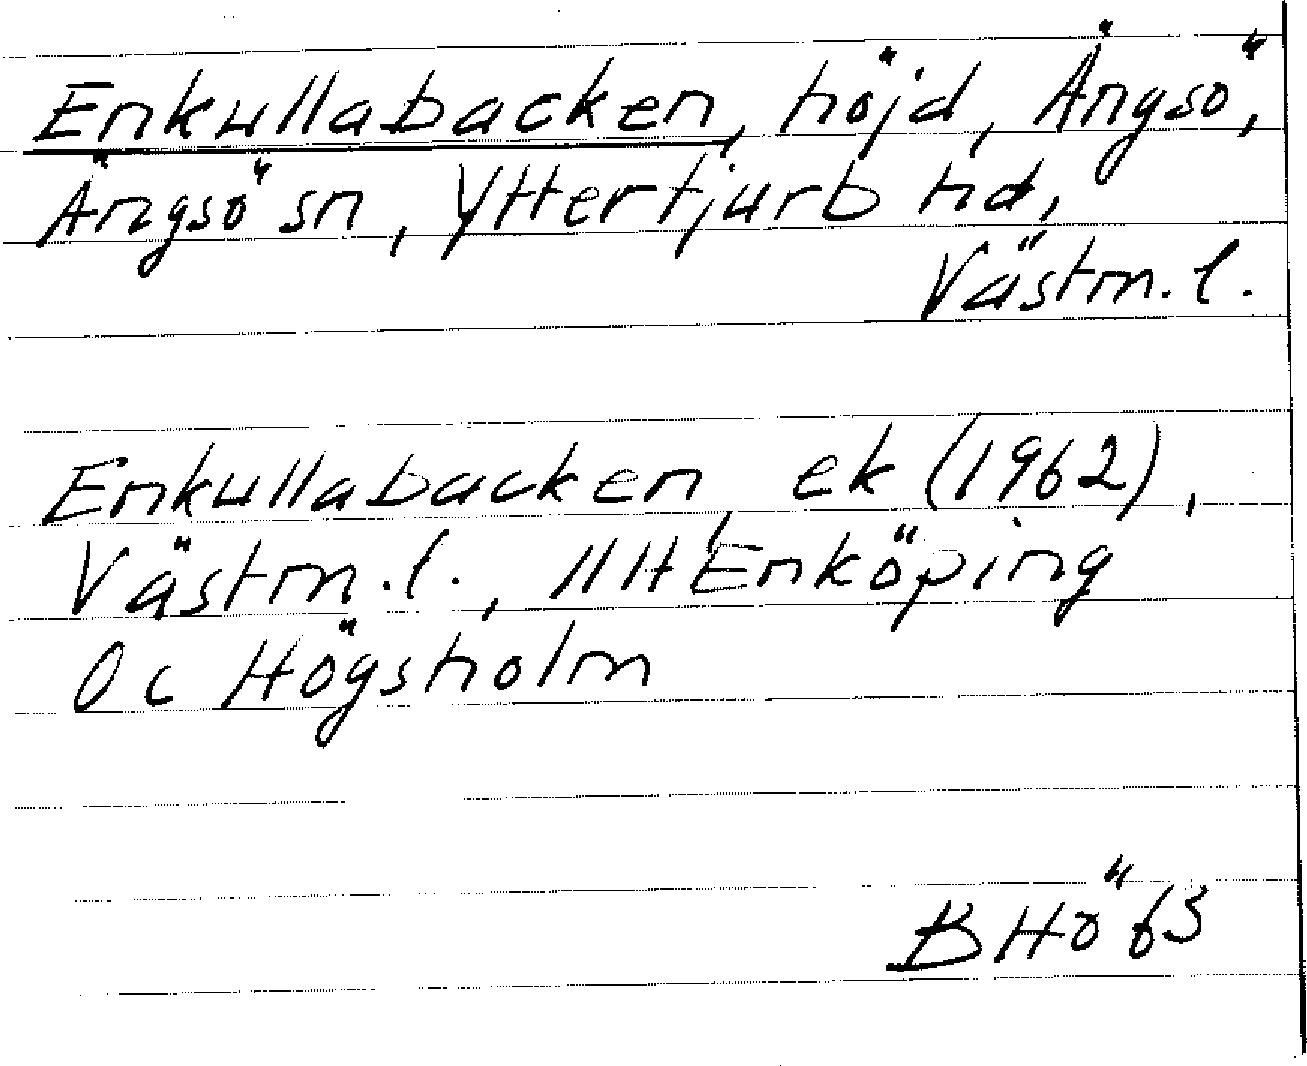 Enkullabacken, höjd, Ängsö,
Ängsö sn, Yttertjurb hd,
Västm. l.
Enkullabacken ek (1962),
Västm. l., 11H Enköping
0c Högsholm
BHö 63